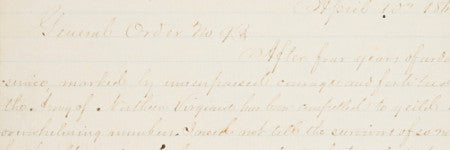 April 10th 186
General Order No 9
After four years of ardu
service marked by unsurpassed courage and fortitude
the Army of Northern Virginia has been compelled to yield
overwhelming numbers I need not tell the survivors of so m